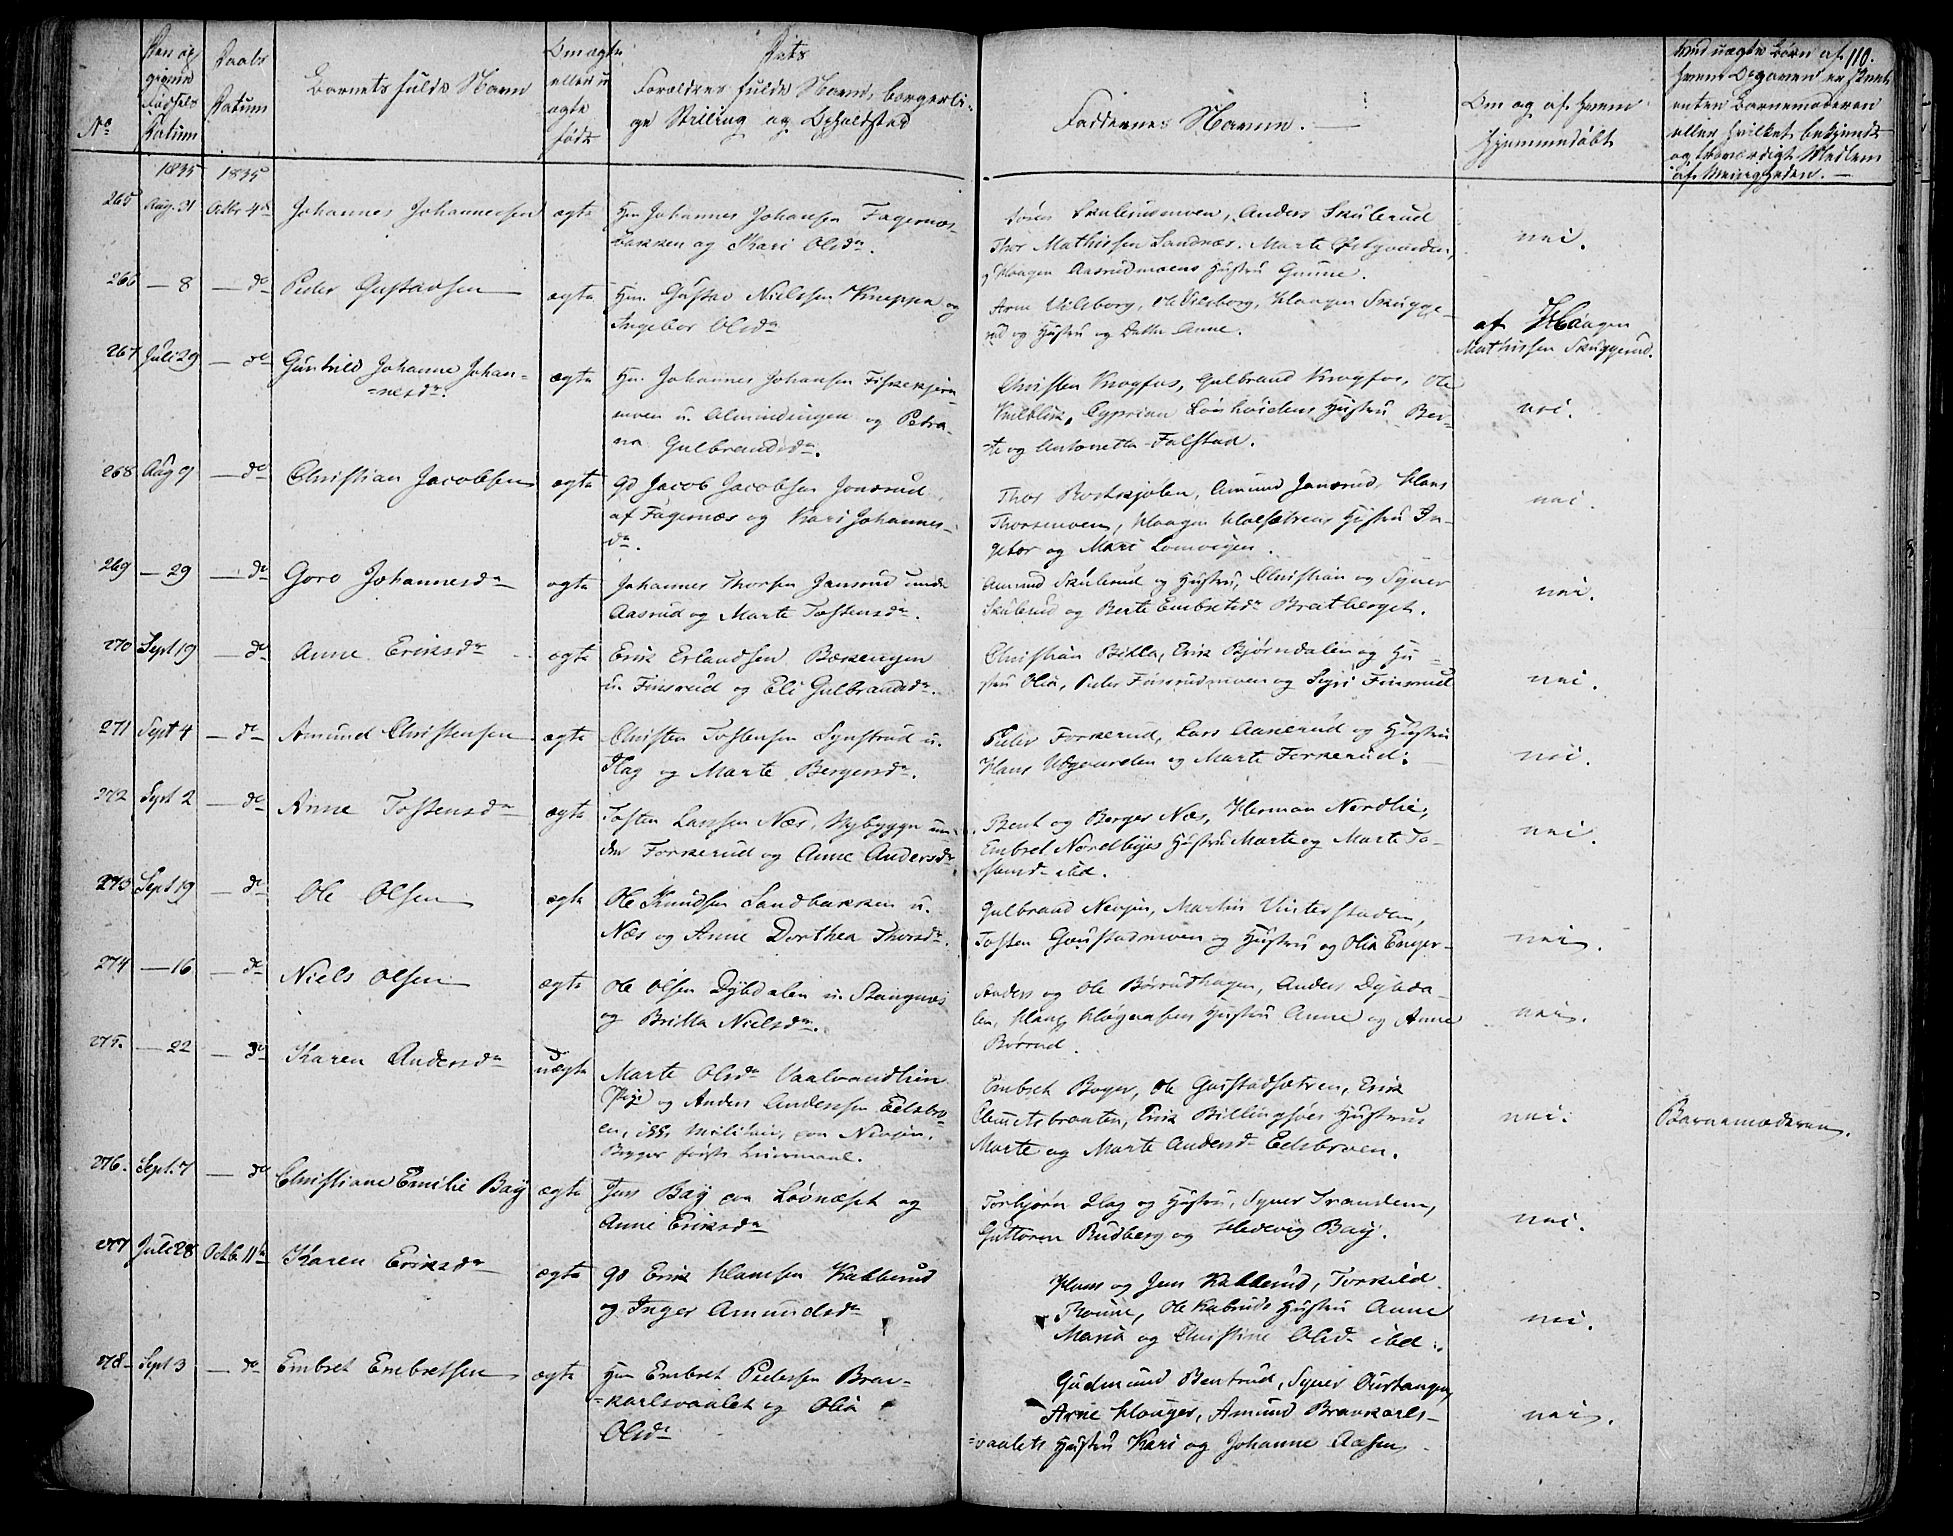 110.
No
Den op
givne
Fødsels
Datum
Daabs
Datum
Barnets fulde Navn
Om ægte
eller u
ægte
født
Dets
Forældres fulde Navne, borgerli-
ge Stilling og Opholdsted
Faddernes Navne.
Om og af hvem
hjemmedøbt
Ved uægte Børn af
hvem Opgaven er skeet
enten Barnemoderen
eller hvilket bekjendt
og troværdigt Medlem
af Menigheden.
1835 1835
265 Aug. 31 Octbr 4de Johannes Johannesen ægte
Hm Johannes Johansen Fagernæs-
bakken og Kari Olsdr.
Søren Skulerudmoen, Anders Skulerud
Thor Mathissen Sandnæs. Marte Østgaarden,
og Haagen Aasrudmoens Hustru Gunne.
nei.
266 — 8 — do Peder Gustavsen ægte
Hm. Gustav Nielssen Kneppa og
Ingebor Olsdr
Arne Vilsborg, Ole Vilsborg, Haagen Skugge-
rud og Hustru og Datter Anne.
af Haagen
Mathissen Skuggerud.
267 Juli 29 — do Gunhild Johanne Johan-
=nesdr. ægte
Hm. Johannes Johansen Fiskekjern-
moen u. Almindingen og Petro-
na Gulbrandsdr.
Christen Knogfos, Gulbrand Knogfos, Ole
Kulblik, Cyprian Lønhøidens Hustru Ber-
te og Antonette Falstad.
nei.
268 Aug 9 — do Christian Jacobsen ægte
Gd Jacob Jacobsen Jonsrud
af Fagernæs og Kari Johannes-
dr.
Thor Botskjølen, Amund Jansrud, Hans
Thorsmoen, Haagen Holsætrens Hustru In-
gebor og Mari Lomvigen.
nei
269 — 29 — do Goro Johannesdr ægte
Johannes Thorsen Jansrud under
Aasrud og Marte Tostensdr.
Amund Skulerud og Hustru, Christian og Syver
Skulerud og Berte Embretsdr Bratberget.
nei.
270 Sept 19 — do Anne Eriksdr ægte
Erik Erlandsen Bækengen
u. Finsrud og Eli Gulbrandsdr.
Christian Bikla, Erik Bjørndalen og Hu-
stru Olia, Peder Finsrudmoen og Sigri Finsrud
nei.
271 Sept 4 — do Amund Christensen ægte
Christen Tostensen Lynstrud u.
Hag og Marte Bergersdr.
Peder Forkerud, Lars Aanerud og Hustru
Hans Udgaarden og Marte Forkerud.
nei.
272 Sept 2 — do Anne Tostensdr ægte
Tosten Larssen Næs, Nybygge un-
der Forkerud og Anne Andersdr
Bent og Berger Næs, Herman Nordlie,
Embret Nordbyes Hustru Marte og Marte To-
stensdr ibid.
nei.
273 Sept 19 — do Ole Olsen ægte
Ole Knudsen Sandbakken u.
Næs og Anne Dorthea Thorsdr.
Gulbrand Nevsjen, Martin Vinterstaden,
Tosten Gaustadmoen og Hustru og Olia Enger-
nei.
274 — 16 — do Niels Olsen ægte
Ole Olsen Dybdalen u. Stangnæs
og Britta Nielsdr.
Anders og Ole Børrudhagen, Anders Dybda-
len, Hans Høgnæsens Hustru Anne og Anne
Børrud.
nei.
275. — 22 — do Karen Andersdr uægte
Marte Olsdr Vaalvandlien
Pige og Anders Andersen Eidsbro-
en, Militair, paa Nevsjen,
Begges første Leiermaal.
Embret Boger, Ole Gaustadsætren, Erik
Clemetsbraaten, Erik Billingsøes Hustru
Marte og Marte Andersdr Eidsbroen.
nei.
Barnemoderen.
276. Sept. 7 — do Christiane Emilie Bay ægte
Jens Bay paa Løvnæset og
Anne Eriksdr
Torbjørn Hag og Hustru, Syver Tranden,
Guttorm Rudberg og Hedevig Bay.
nei.
277 Juli 28 Octb. 11te Karen Eriksdr ægte
Gd Erik Hansen Kabberud
og Inger Amundsdr
Hans og Jens Kabberud, Torkild
Troune, Ole Kabruds Hustru Anne
Maria og Christine Olsdr ibd.
nei.
278 Sept 3 — do Embret Embretsen ægte
Hm Embret Pedersen Brav-
=karlsvaalet og Olia
Olsdr
Gudmund Bentrud, Syver Ourtangen,
Arne Haugen, Amund Bravkarls-
=vaalets Hustru Kari og Johanne Aasen
nei.